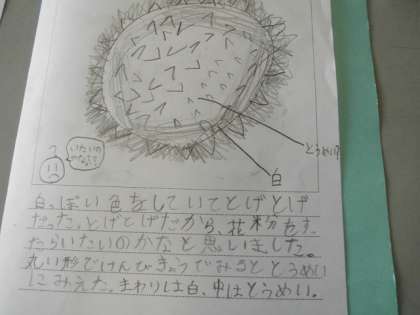 とうめい
白
?
いたいの
かなぁ?
白っぽい色をしていてとげとげ
だった。とげとげだから、花粉がす
たらいたいのかなと思いました。
丸い形でけんびきょうでみるととうめい
にみえた。まわりは白、中はとうめい。